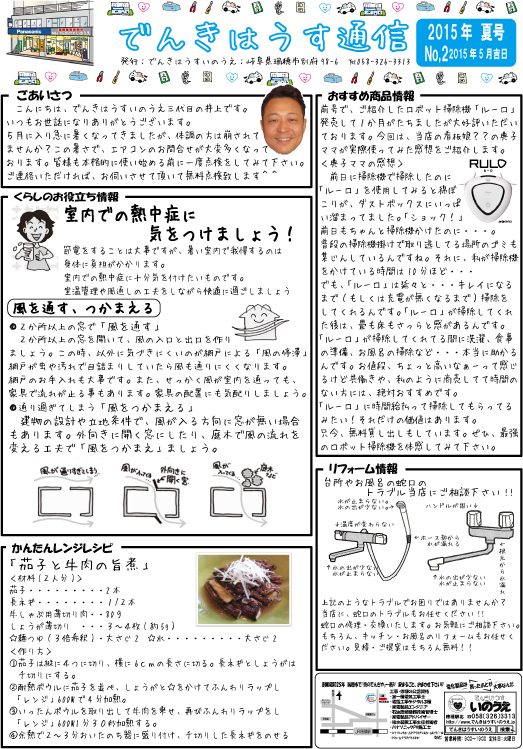 でんきはうす通信
発行：でんきはうすいのうえ：岐阜県瑞穂市別府98-6 ℡058-326-3313
2015年 夏号
No,2 2015年5月吉日
Panasonic
ごあいさつ
こんにちは、でんきはうすいのうえ三代目の井上です。
いつもお世話になりありがとうございます。
5月に入り急に暑くなってきましたが、体調の方は崩されて
ませんか？この暑さで、エアコンのお問合せが大変多くなって
おります。皆様も本格的に使い始める前に一度点検をしてみて下さい。
ご連絡いただければ、お伺いさせて頂いて無料点検致します^^
くらしのお役立ち情報
室内での熱中症に
気をつけましょう！
節電をすることは大事ですが、暑い室内で我慢するのは
身体に負担がかかります。
室内での熱中症に十分気を付けたいものです。
室温管理や風通しの工夫をしながら快適に過ごしましょう
風を通す、つかまえる
●2か所以上の窓で「風を通す」
2か所以上の窓を開いて、風の入口と出口を作り
ましょう。この時、以外に気づきにくいのが網戸による「風の停滞」
網戸が虫や汚れで目詰まりしていたら風も通りにくくなります。
網戸のお手入れも大事です。また、せっかく風が室内を通っても、
家具で流れが止る事もあります。家具の配置にも気配りしましょう。
●通り過ぎてしまう「風をつかまえる」
建物の設計や立地条件で、風が入る方向に窓が無い場合
もあります。外向きに開く窓にしたり、庭木で風の流れを
変える工夫で「風をつかまえ」ましょう。
風が通りすぎてしまう
風が入ってくる
外向きに開く窓
風が入ってくる
庭木など
かんたんレンジレシピ
「茄子と牛肉の旨煮」
<材料(2人分)>
茄子・・・・・・・・・・2本
長ネギ・・・・・・・・・1/2本
牛しゃぶ用薄切り肉・・80g
しょうが薄切り ・・・3〜4枚(約5g)
☆麺つゆ(3倍希釈)・大さじ2 ☆水・・・・・・・・・・大さじ2
<作り方>
①茄子は縦に4つに切り、横に6cmの長さに切る。長ネギとしょうがは
千切りにする。
②耐熱ボウルに茄子を並べ、しょうがと☆をかけてふんわりラップし
「レンジ」600Wで4分加熱。
③いったんボウルを取り出して牛肉を乗せ、再びふんわりラップをし
「レンジ」600W1分30秒加熱する。
④余熱で2〜3分おいたのち器に盛り付け、千切りした長ネギをのせる
おすすめ商品情報
前号で、ご紹介したロボット掃除機「ルーロ」
発売して1か月がたちましたが大好評いただい
ております。今回は、当店の看板娘？？の典子
ママが実際使ってみた感想をご紹介します。
<典子ママの感想>
RULO
前日に掃除機で掃除したのに
「ルーロ」を使用してみると綿ぼ
こりが、ダストボックスにいっぱ
い溜まってました。「ショック！」
前日もちゃんと掃除機かけたのに・・・。
普段の掃除機掛けで取り逃してる場所のゴミも
集じんしているんですね。それに、私が掃除機
をかけている時間は10分ほど・・・
でも、「ルーロ」は延々と・・・キレイになる
まで(もしくは充電が無くなるまで)掃除を
してくれるんです。「ルーロ」が掃除してくれ
た後は、畳も床もさらっと感があるんです。
「ルーロ」が掃除してくれてる間に洗濯、食事
の準備、お風呂の掃除など・・・本当に助かる
んです。お値段、ちょっと高いなぁーって感じ
るけど共働きや、私のように商売してて時間の
ない方には、絶対おすすめです。
「ルーロ」に時間給払って掃除してもらってる
みたい！それだけの価値はあります。
只今、無料貸し出しもしています。ぜひ、最強
のロボット掃除機を体感してみて下さい。
リフォーム情報
台所やお風呂の蛇口の
トラブル当店にご相談下さい！！
水が止まらない。
水の出が少ない。
ハンドルが固い
温度が変わらない
ホース部から水が漏れる
根元から水漏れ
水の出が少ない
水が止まらない
水の出が少ない
水が止まらない
上記のようなトラブルでお困りではありませんか？
当店に、蛇口のトラブルもお任せください！！
蛇口の修理・交換いたします。お気軽にご相談下さい。
もちろん、キッチン・お風呂のリフォームもお任せく
ださい。見積・ご提案はもちろん無料！！
いのうえ
℡058(326)3313
でんきはうすいのうえ 検索
営業時間:9:00〜19:00 定休日:火曜日